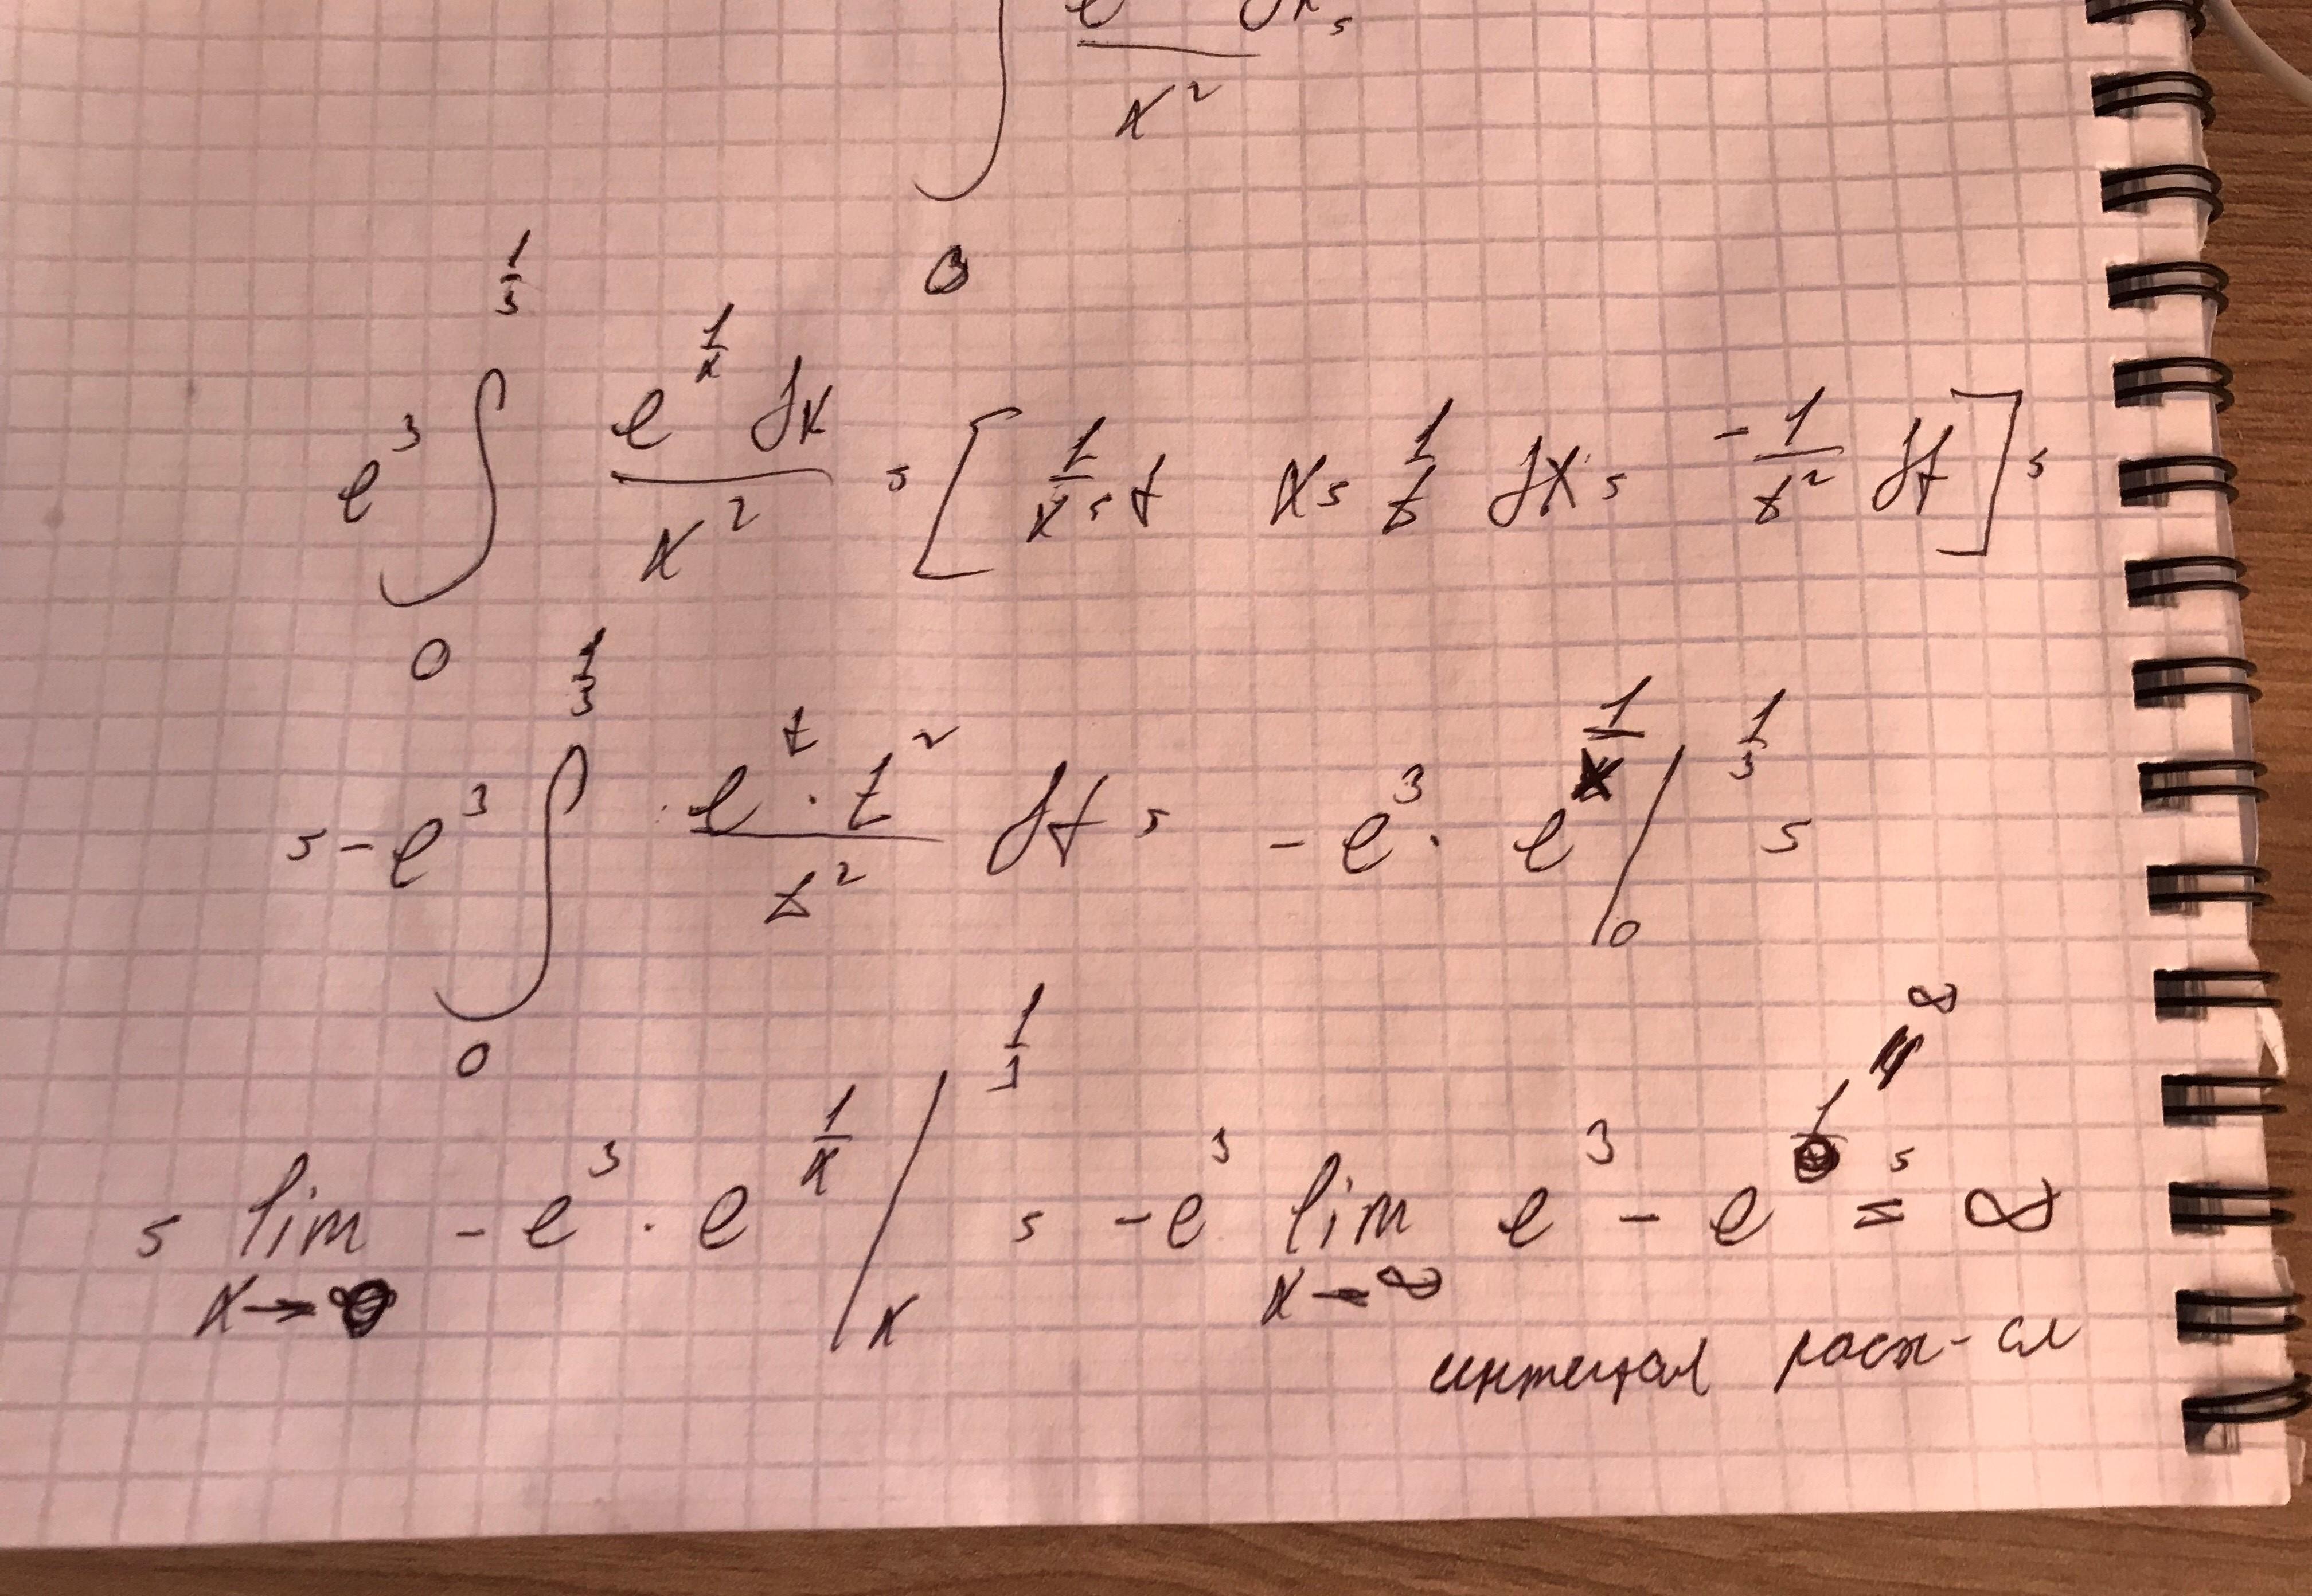 ∫ e dx =
x²
0
e³ ∫₀^{1/3} e^{1/x} dx / x² = [ 1/x = t   x = 1/t   dx = -1/t² dt ] =
= -e³ ∫₀^{1/3} e^t · t² / t² dt = -e³ · e^{1/x} |₀^{1/3} =
= lim x→0 -e³ · e^{1/x} |ₓ^{1/3} = -e³ lim x→∞ e³ - e^{1/0 = ∞} = ∞
интеграл расх-ся